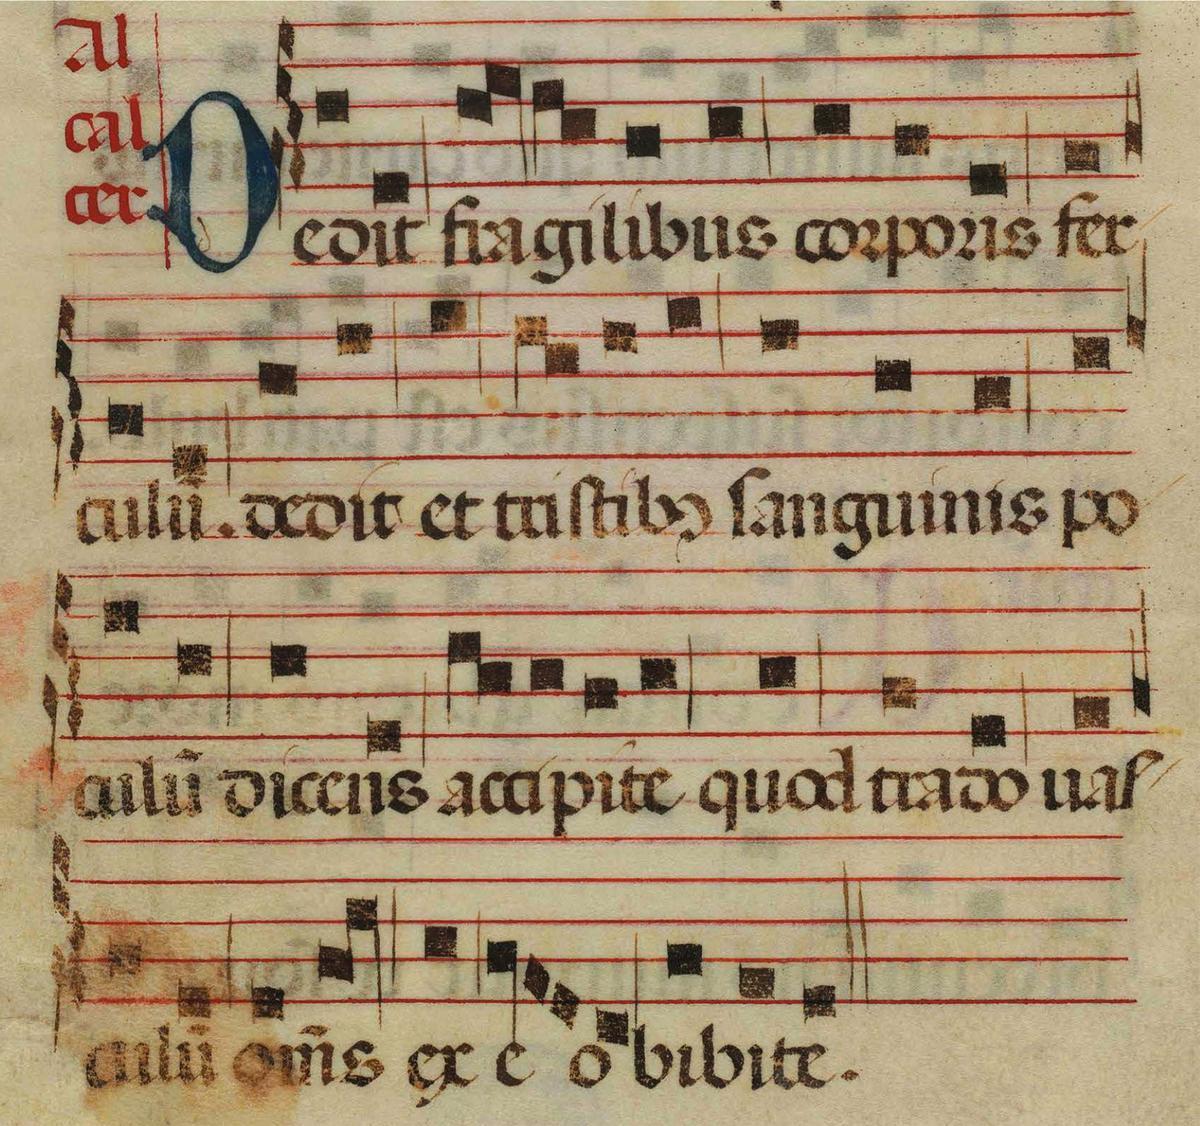 Al
cal
cer
Dedit fragilibus corporis fer
culũ. dedit et tristibꝫ sanguinis po
culũ dicens accipite quod trado uas
culũ om̃s ex eo bibite.